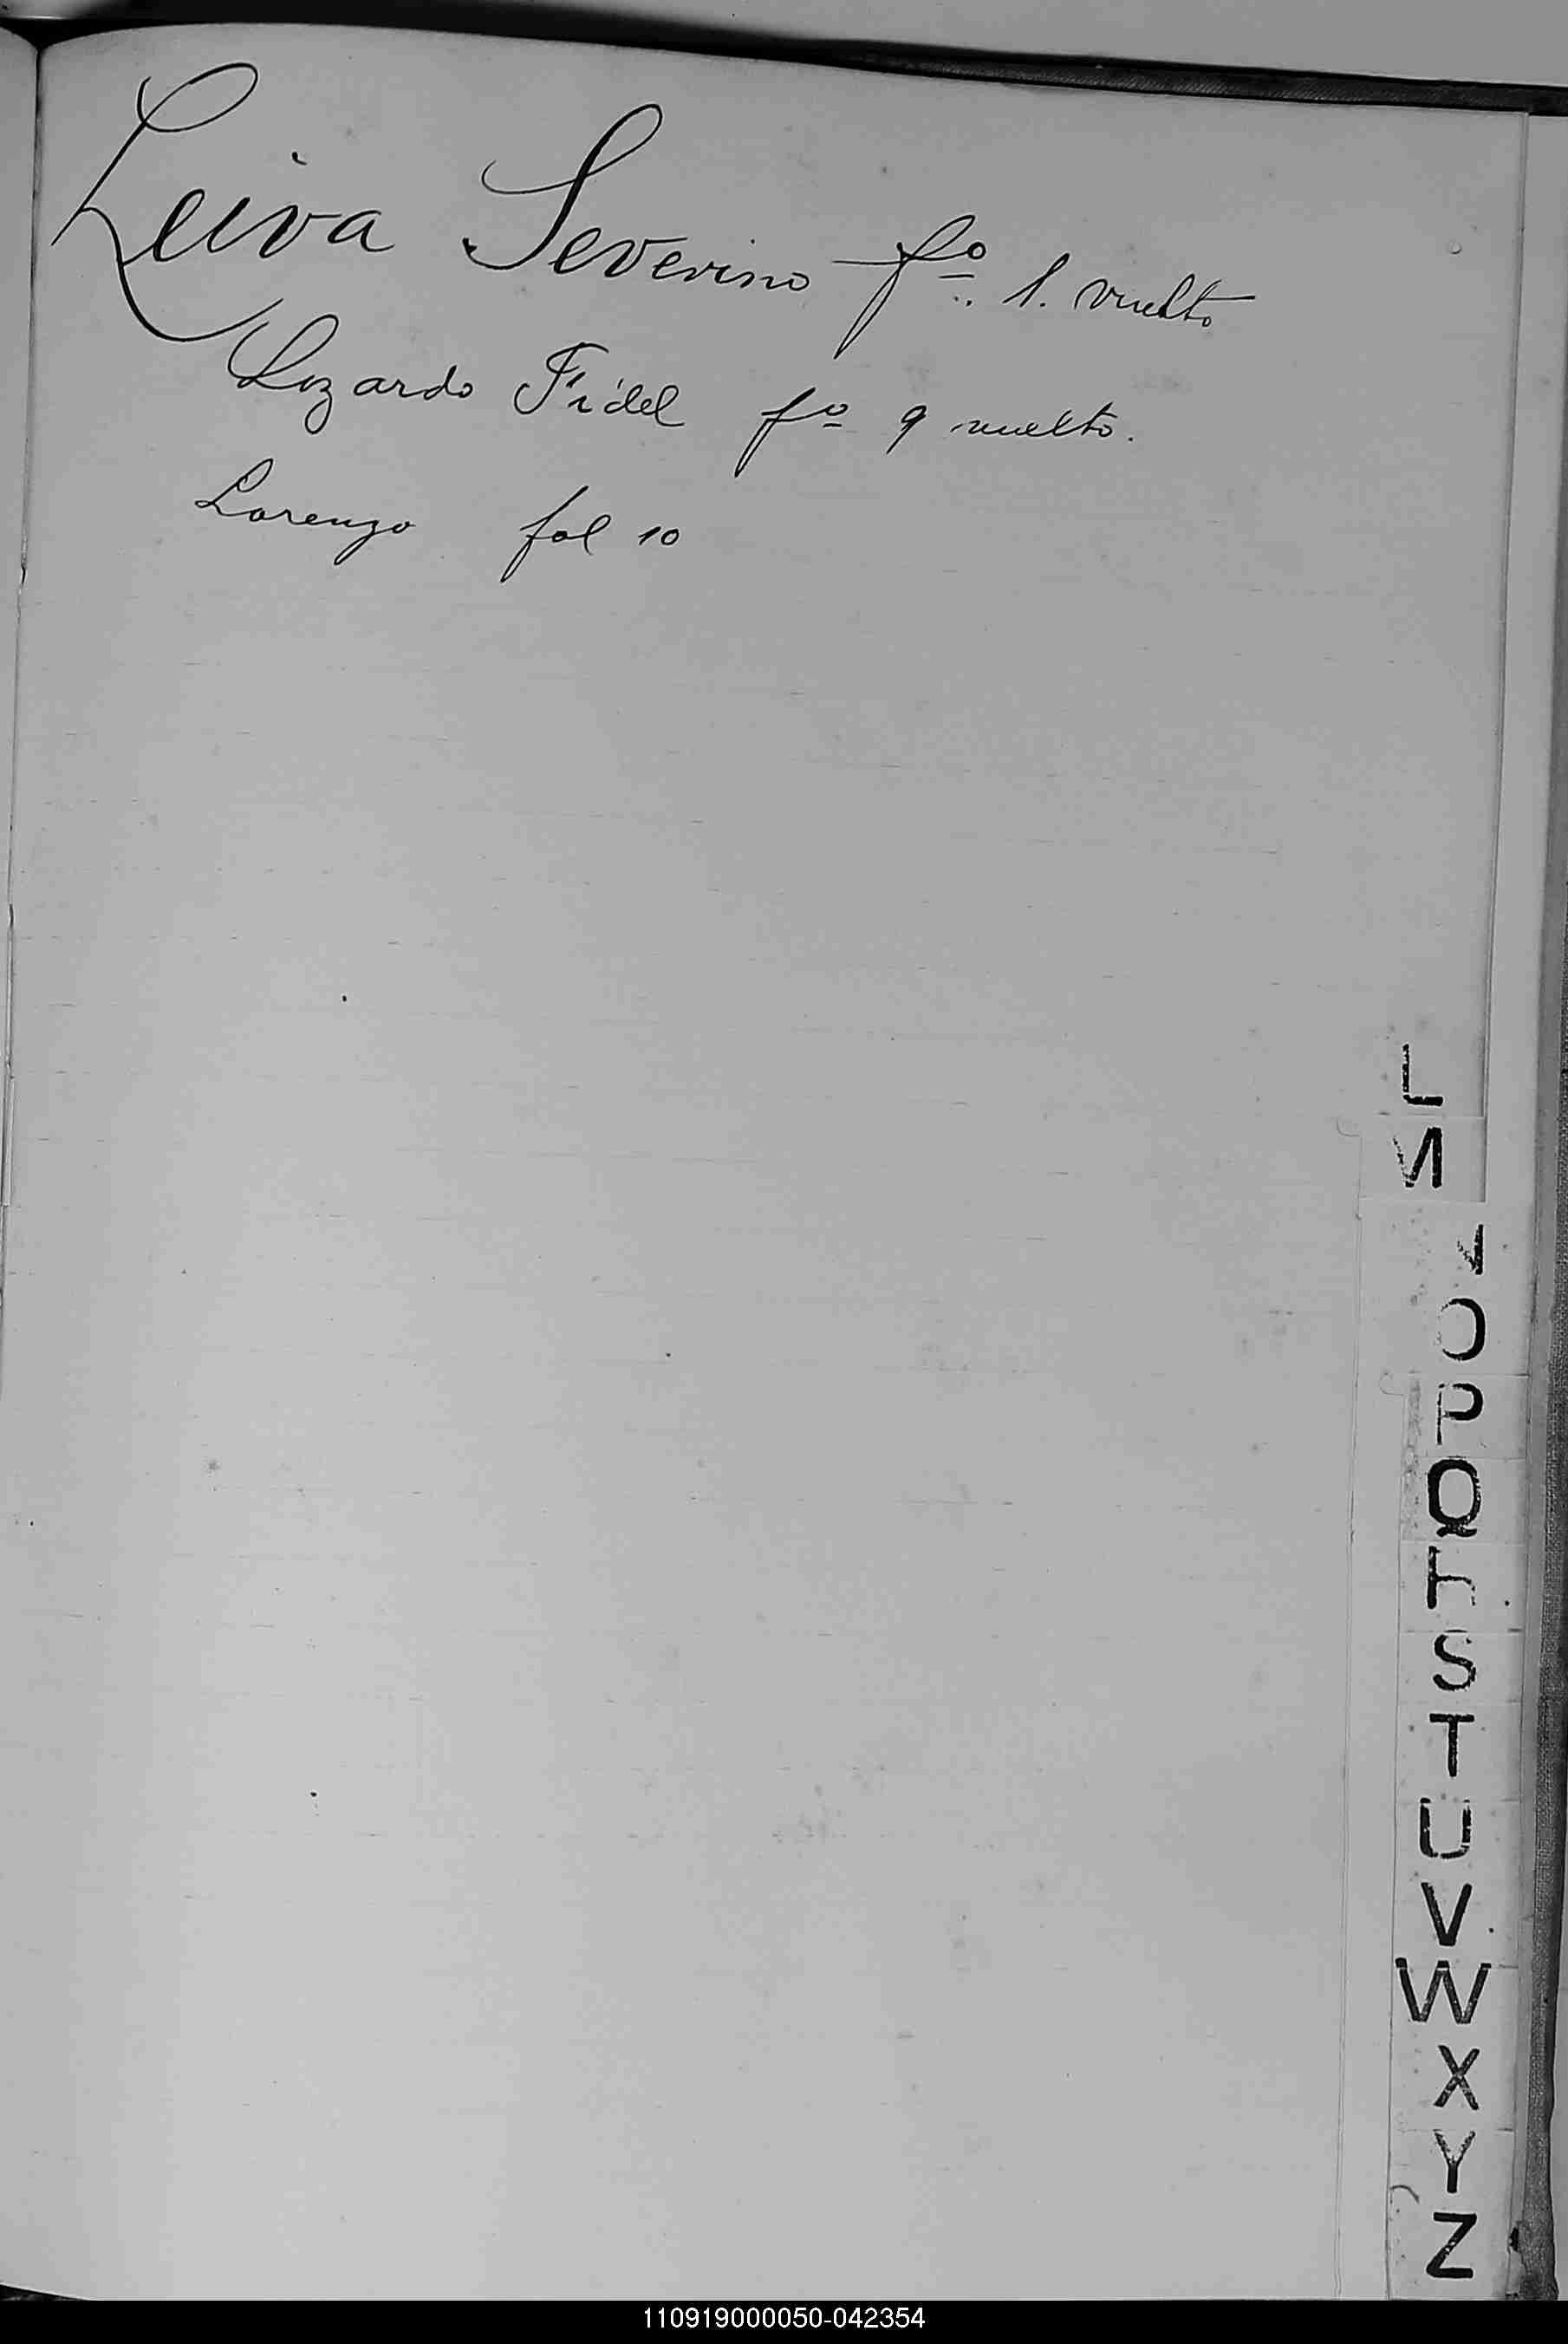 Leiva Severino fº. 1. vuelto
Lozardo Fidel fº 9 vuelto.
Lorenzo fol 10
L
M
N
O
P
Q
R
S
T
U
V
W
X
Y
Z
110919000050-042354